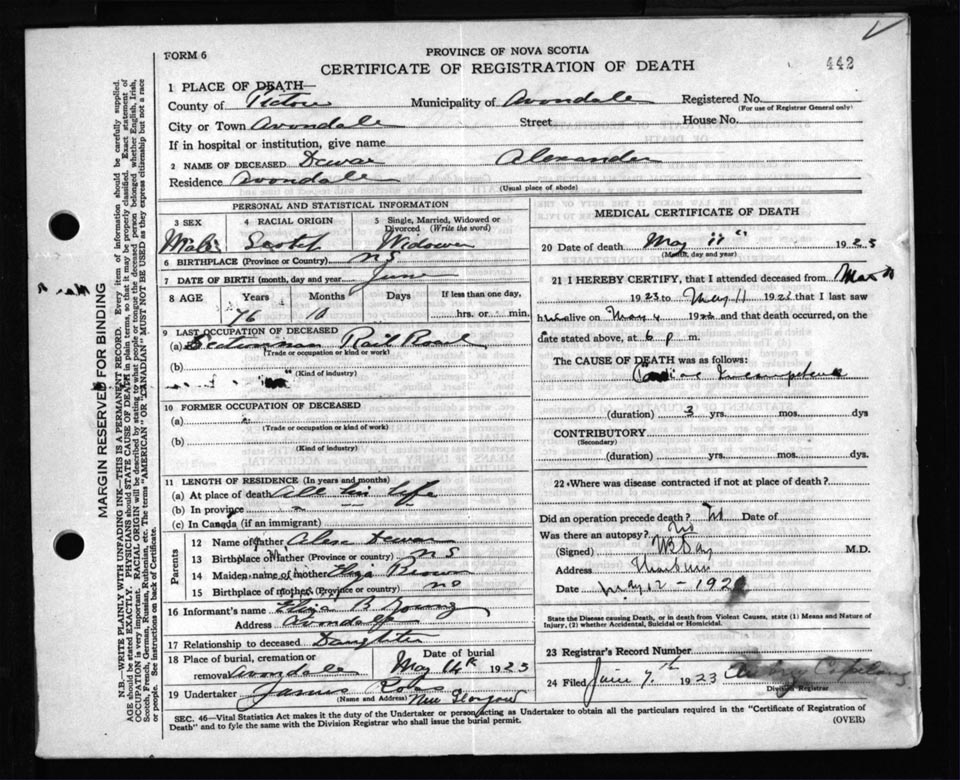 FORM 6
PROVINCE OF NOVA SCOTIA
CERTIFICATE OF REGISTRATION OF DEATH
442
1 PLACE OF DEATH—
County of Pictou Municipality of Avondale Registered No.
(For use of Registrar General only)
City or Town Avondale Street House No.
If in hospital or institution, give name
2 NAME OF DECEASED Dewar Alexander
Residence Avondale
(Usual place of abode)
PERSONAL AND STATISTICAL INFORMATION
3 SEX Male
4 RACIAL ORIGIN Scotch
5 Single, Married, Widowed or Divorced (Write the word) Widower
6 BIRTHPLACE (Province or Country) NS
7 DATE OF BIRTH (month, day and year) June
8 AGE Years Months Days If less than one day,
76 10 hrs. or min.
9 LAST OCCUPATION OF DECEASED
(a) Sectionman Rail Road
(Trade or occupation or kind of work)
(b)
(Kind of industry)
10 FORMER OCCUPATION OF DECEASED
(a)
(Trade or occupation or kind of work)
(b)
(Kind of industry)
11 LENGTH OF RESIDENCE (In years and months)
(a) At place of death All his life
(b) In province
(c) In Canada (if an immigrant)
Parents
12 Name of father Alex Dewar
13 Birthplace of father (Province or country) NS
14 Maiden name of mother Eliza Brown
15 Birthplace of mother (Province or country) NS
16 Informant's name Eliza B Young
Address Avondale
17 Relationship to deceased Daughter
18 Place of burial, cremation or removal Avondale
Date of burial May 14th 1923
19 Undertaker James
(Name and Address) New Glasgow
MEDICAL CERTIFICATE OF DEATH
20 Date of death May 11th 1923
(Month, day and year)
21 I HEREBY CERTIFY, that I attended deceased from
1923 to May 11 1923 that I last saw
him alive on May 4 192 and that death occurred, on the
date stated above, at 6 p m.
The CAUSE OF DEATH was as follows:
Cardiac Incompetence
(duration) 3 yrs. mos. dys
CONTRIBUTORY
(Secondary)
(duration) yrs. mos. dys.
22 Where was disease contracted if not at place of death?
Did an operation precede death? No Date of
Was there an autopsy? No
(Signed) M.D.
Address
Date May 12 – 192
State the Disease causing Death, or in death from Violent Causes, state (1) Means and Nature of
Injury, (2) whether Accidental, Suicidal or Homicidal.
23 Registrar's Record Number
24 Filed June 7th 1923
Division Registrar
SEC. 46—Vital Statistics Act makes it the duty of the Undertaker or person acting as Undertaker to obtain all the particulars required in the "Certificate of Registration of
Death" and to fyle the same with the Division Registrar who shall issue the burial permit.
(OVER)
MARGIN RESERVED FOR BINDING
N.B.—WRITE PLAINLY WITH UNFADING INK—THIS IS A PERMANENT RECORD. Every item of information should be carefully supplied.
AGE should be stated EXACTLY. PHYSICIANS should STATE CAUSE OF DEATH in plain terms, so that it may be properly classified. Exact statement of
OCCUPATION is very important. RACIAL ORIGIN will be described by stating to what people or tongue the deceased person belonged whether English, Irish,
Scotch, French, German, Russian, Ruthenian, etc. The terms "AMERICAN" OR "CANADIAN" MUST NOT BE USED as they express citizenship but not a race
or people. See instructions on back of Certificate.